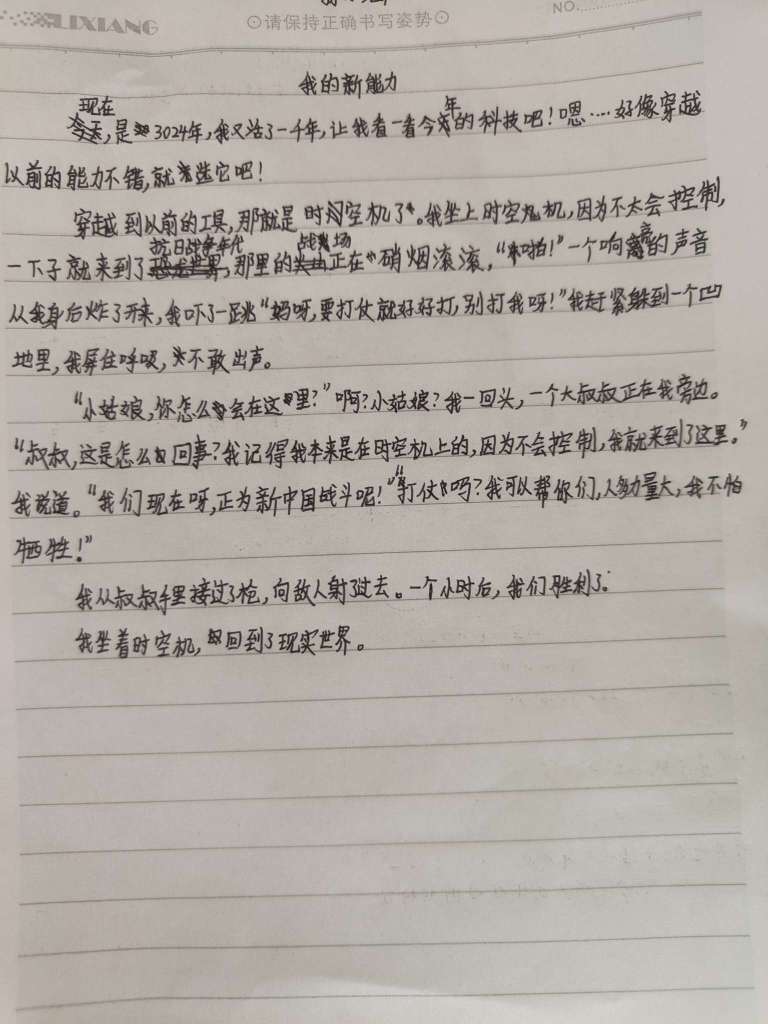 LIXIANG
⊙请保持正确书写姿势⊙
NO.
我的新能力
现在是3024年,我又活了一千年,让我看一看今年的科技吧!嗯····好像穿越
以前的能力不错,就选它吧!
穿越到以前的工具,那就是时间空机了。我坐上时空机,因为不太会控制,
一下子就来到了抗日战争年代,那里的战场正在硝烟滚滚,“啪!”一个响亮的声音
从我身后炸了开来,我吓了一跳“妈呀,要打仗就好好打,别打我呀!”我赶紧躲到一个凹
地里,我屏住呼吸,不敢出声。
“小姑娘,你怎么会在这里?”啊?小姑娘?我一回头,一个大叔叔正在我旁边。
“叔叔,这是怎么回事?我记得我本来是在时空机上的,因为不会控制,我就来到了这里。”
我说道。“我们现在呀,正为新中国战斗呢!”“打仗吗?我可以帮你们,人多力量大,我不怕
牺牲!”
我从叔叔手里接过了枪,向敌人射了过去。一个小时后,我们胜利了。
我坐着时空机,回到了现实世界。